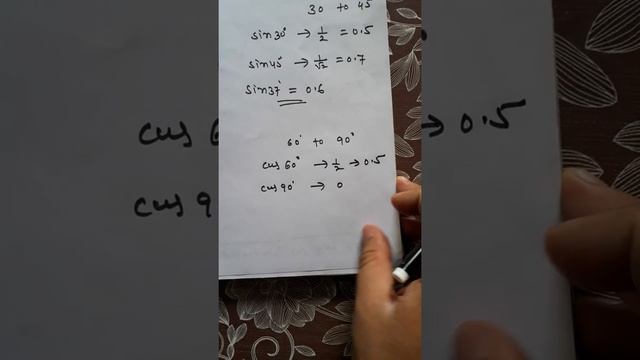 30 to 45
sin30° → 1/2 = 0.5
sin45° → 1/√2 = 0.7
sin37° = 0.6
60° to 90°
cos 60° → 1/2 → 0.5
cos 90° → 0